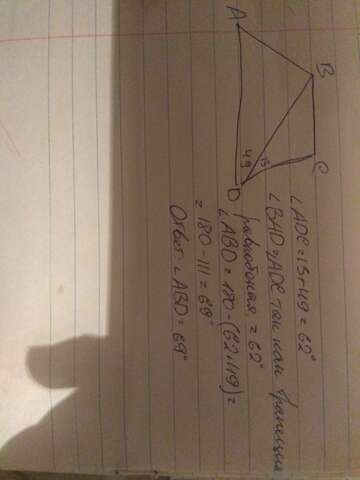 A
B
C
D
49
13
∠ADC = 13+49 = 62°
∠BAD = ADC так как трапеция
равнобокая = 62°
∠ABD = 180-(62+49) =
= 180-111 = 69°
Ответ: ∠ABD = 69°